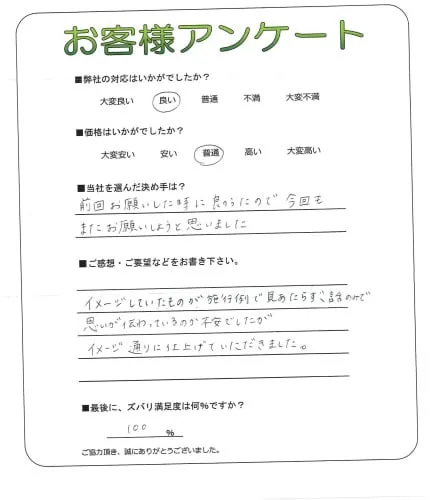 お客様アンケート
■弊社の対応はいかがでしたか？
大変良い 良い 普通 不満 大変不満
■価格はいかがでしたか？
大変安い 安い 普通 高い 大変高い
■当社を選んだ決め手は？
前回お願いした時に良かったので今回も
またお願いしようと思いました
■ご感想・ご要望などをお書き下さい。
イメージしていたものが、施行例で見あたらず話のみで
思いが伝わっているのか不安でしたが
イメージ通りに仕上げていただきました。
■最後に、ズバリ満足度は何％ですか？
100 %
ご協力頂き、誠にありがとうございました。